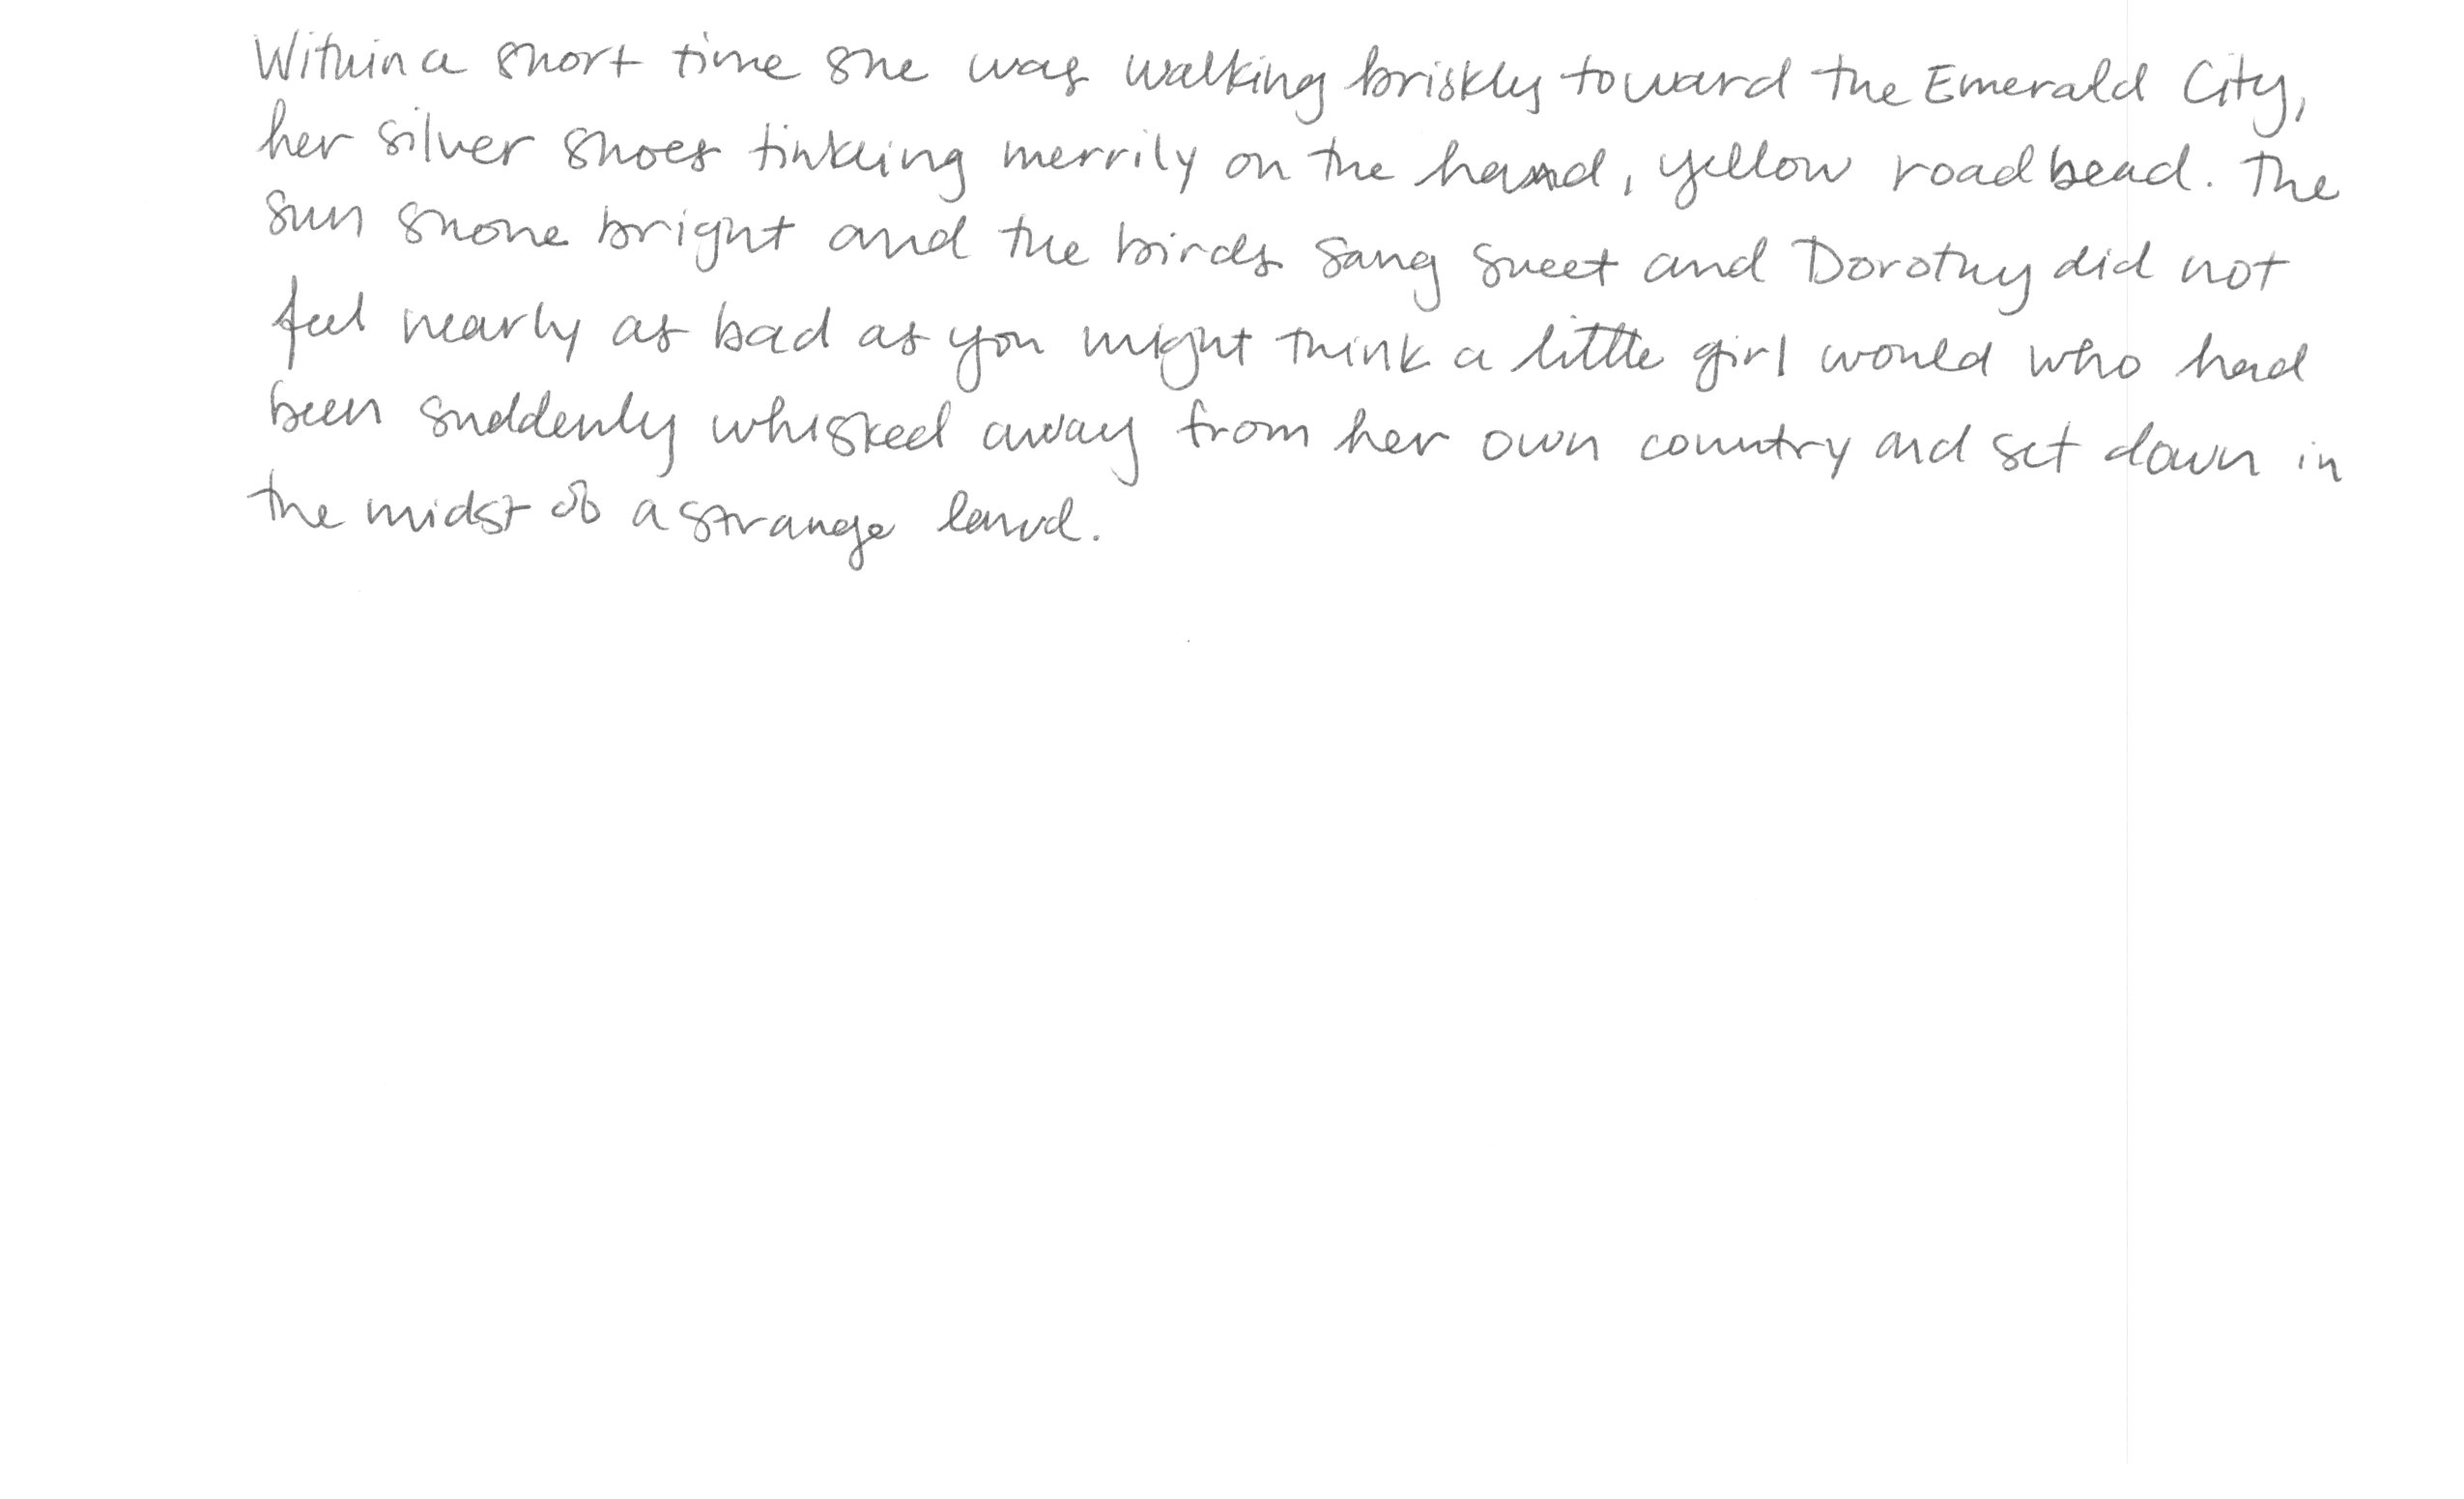 Within a short time she was walking briskly toward the Emerald City,
her silver shoes tinkling merrily on the hard, yellow roadbead. The
sun shone bright and the birds sang sweet and Dorothy did not
feel nearly as bad as you might think a little girl would who had
been suddenly whisked away from her own country and set down in
the midst of a strange land.